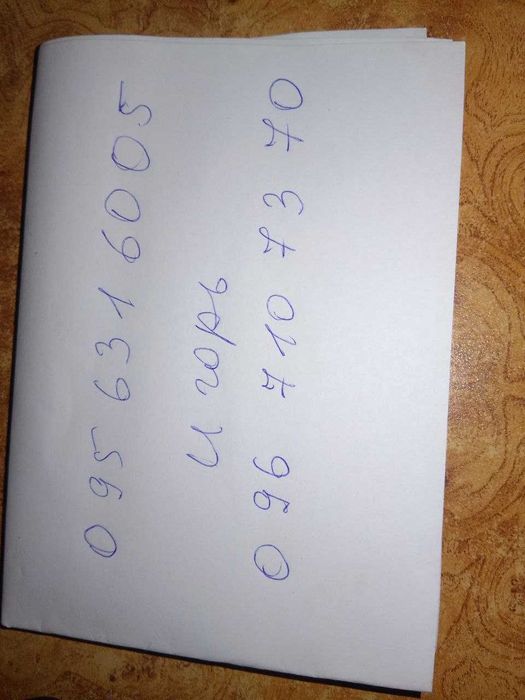 095 631 6005
Игорь
096 710 73 70